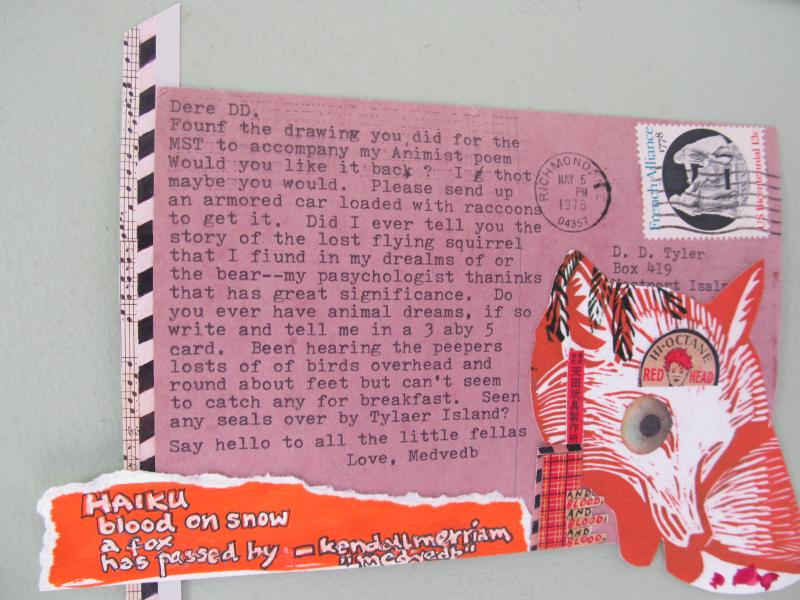 Dere DD.
Founf the drawing you did for the
MST to accompany my Animist poem
Would you like it back? I thot
maybe you would. Please send up
an armored car loaded with raccoons
to get it. Did I ever tell you the
story of the lost flying squirrel
that I fiund in my drealms of or
the bear--my pasychologist thaninks
that has great significance. Do
you ever have animal dreams, if so
write and tell me in a 3 aby 5
card. Been hearing the peepers
losts of of birds overhead and
round about feet but can't seem
to catch any for breakfast. Seen
any seals over by Tylaer Island?
Say hello to all the little fellas
Love, Medvedb
RICHMOND, ME
MAY 5
PM
1978
04357
French Alliance
1778
US Bicentennial
D. D. Tyler
Box 419
HI-OCTANE
RED HEAD
AND
BLOOD,
AND
BLOOD,
AND
BLOOD,
HAIKU
blood on snow
a fox
has passed by — kendall merriam
"medvedb"